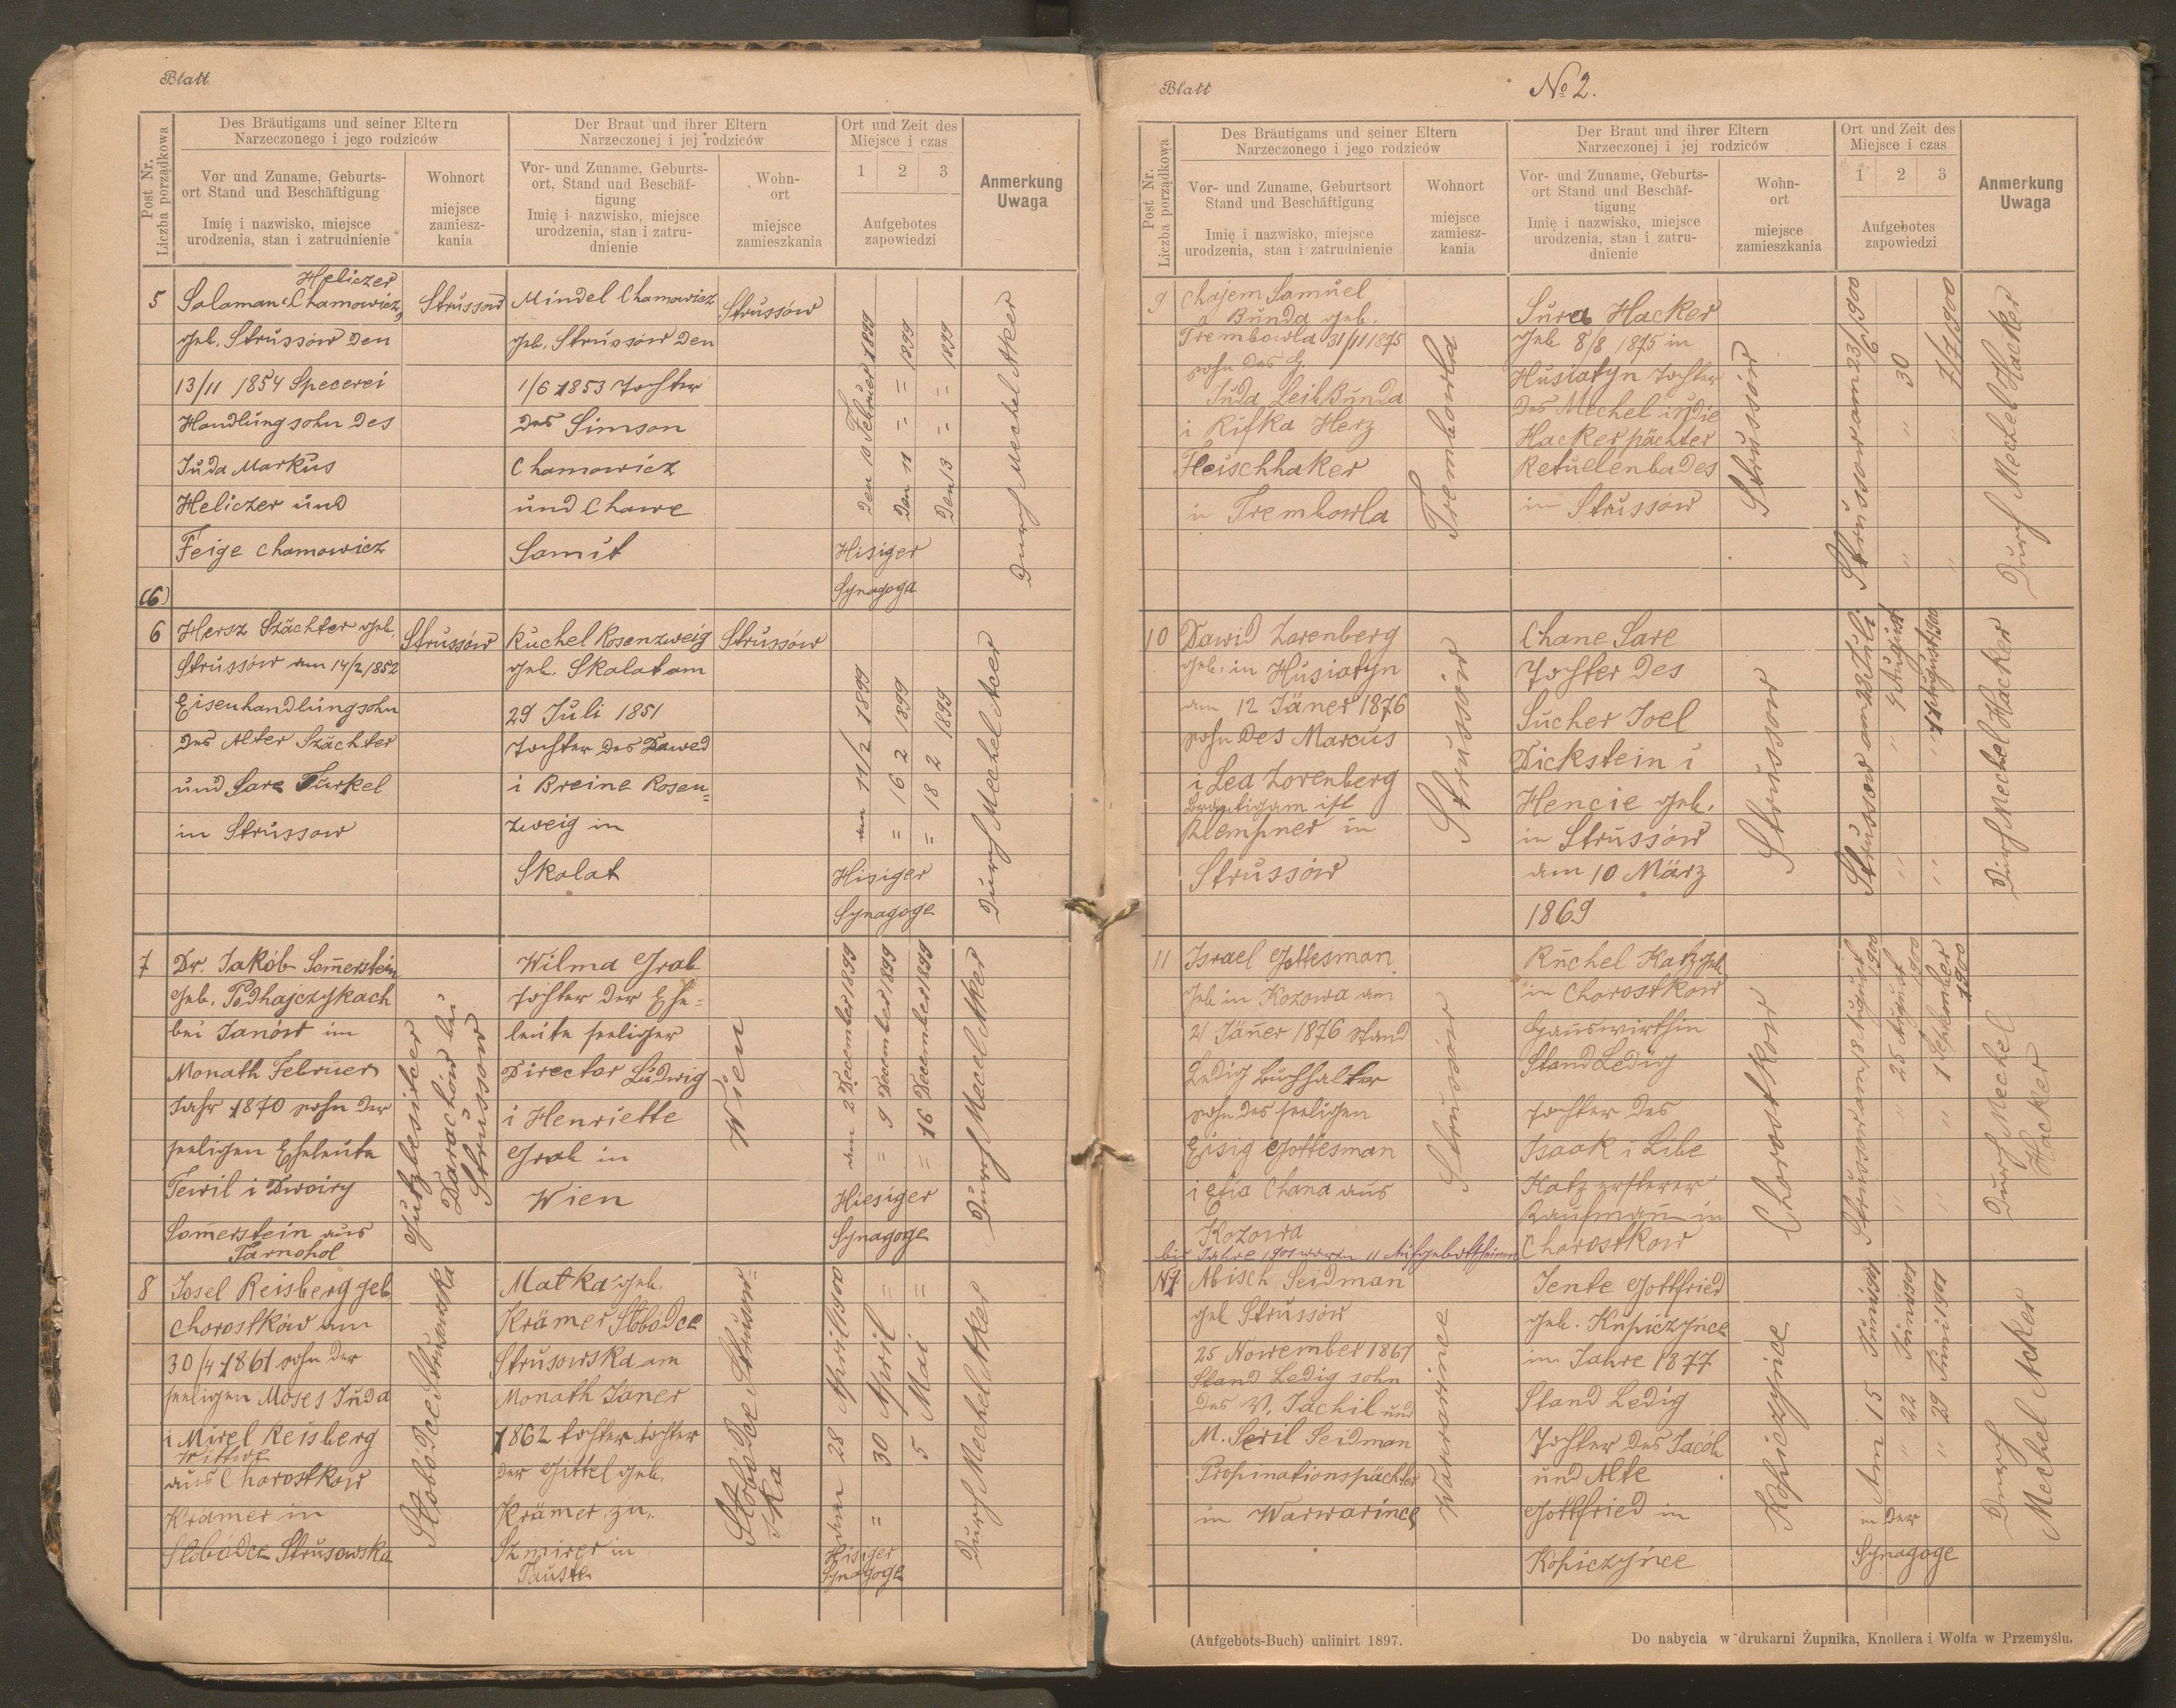 Blatt
Post Nr.
Liczba porządkowa
Des Bräutigams und seiner Eltern
Narzeczonego i jego rodziców
Vor und Zuname, Geburts-
ort Stand und Beschäftigung
Imię i nazwisko, miejsce
urodzenia, stan i zatrudnienie
Wohnort
miejsce
zamiesz-
kania
Der Braut und ihrer Eltern
Narzeczonej i jej rodziców
Vor- und Zuname, Geburts-
ort, Stand und Beschäf-
tigung
Imię i nazwisko, miejsce
urodzenia, stan i zatru-
dnienie
Wohn-
ort
miejsce
zamieszkania
Ort und Zeit des
Miejsce i czas
1 2 3
Aufgebotes
zapowiedzi
Anmerkung
Uwaga
5
Heliczer
Salaman Chamowicz,
geb. Strussów den
13/11 1854 Specerei
Handlung sohn des
Juda Markus
Heliczer und
Feige Chamowicz
Strussow
Mindel Chamowicz
geb. Strussów den
1/6 1853 Tochter
des Simson
Chamowicz
und Chawe
Samit
Strussów
den 10 Februer 1899
den 11 = = 1899
den 13 = = 1899
Hisiger
Synagoga
Durch Mechel Aker
(6)
6
Hersz Szächter geb.
Strussów am 14/2 1852
Eisenhandlung sohn
des Alter Szächter
und Sare Türkel
in Strussow
Strussów
Ruchel Rosenzweig
geb. Skalat am
29 Juli 1851
Tochter des Dawed
i Breine Rosen=
zweig in
Skalat
Strussów
am 11/2 1899
= 16 2 1899
= 18 2 1899
Hisiger
Synagoge
Durch Mechel Aker
7
Dr. Jakób Somerstein
geb. Podhajczykach
bei Janów im
Monath Februer
Jahr 1870 sohn der
seeligen Eheleute
Tewil i Dwoiry
Somerstein aus
Tarnopol
Gutzbesitcer
Darachów bei
Strussow
Wilma Grab
Tochter der Ehe=
leute seeliger
Director Ludwig
i Henriette
Grab in
Wien
Wien
am 2 December 1899
= 9 December 1899
= 16 December 1899
Hiesiger
Synagoge
Durch Mecel Aker
8
Josel Reisberg geb.
Chorostków am
30/4 1861 sohn der
seeligen Moses Juda
i Mirel Reisberg
Wittwe
aus Chorostkow
Krämer in
Slobódce Strusowska
Slobódce Strusowska
Malka geb.
Krämer Slobódce
Strusowska am
Monath Jäner
1862 tochter tochter
der Gittel geb.
Krämer zu
in
Tauste
Slobódce Strusow=
ska
den 28 April 1900
= 30 April =
5 Mai =
Hisiger
Synagoge
Durch Mechel Aker
Blatt
№ 2.
Post Nr.
Liczba porządkowa
Des Bräutigams und seiner Eltern
Narzeczonego i jego rodziców
Vor- und Zuname, Geburtsort
Stand und Beschäftigung
Imię i nazwisko, miejsce
urodzenia, stan i zatrudnienie
Wohnort
miejsce
zamiesz-
kania
Der Braut und ihrer Eltern
Narzeczonej i jej rodziców
Vor- und Zuname, Geburts-
ort Stand und Beschäf-
tigung
Imię i nazwisko, miejsce
urodzenia, stan i zatru-
dnienie
Wohn-
ort
miejsce
zamieszkania
Ort und Zeit des
Miejsce i czas
1 2 3
Aufgebotes
zapowiedzi
Anmerkung
Uwaga
9
Chajem Samuel
Bunda geb.
Trembowla 31/11 1875
sohn des
Juda Leib Bunda
i Rifka Herz
Fleischhaker
in Trembowla
Trembowla
Sura Hacker
geb 8/8 1875 in
Husiatyn Tochter
des Mechel
Hacker pächter
Retuelenbades
in Strussów
Strussów
Strussow am 23/6 1900
" " 30
" " 7/7 1900
Durch Mechel Hacker
10
Dawid Zorenberg
geb. in Husiatyn
am 12 Jäner 1876
sohn des Marcus
i Lea Zorenberg
Bräutigam ist
Klempner in
Strussów
Strussów
Chane Sare
Tochter des
Sucher Joel
Dickstein i
Hencie geb.
in Strussów
am 10 März
1869
Strussow
Strussow am 28 Juli
" " 4 August
" " 11 August 1900
Durch Mechel Hacker
11
Israel Gottesman
geb in Kozowa am
21 Jäner 1876 stand
Ledig Buchhalter
sohn des seeligen
Eisig Gottesman
i Etia Chana aus
Kozowa
Strussów
Ruchel Katz geb
in Chorostkow
Hauswirthin
Stand Ledig
Tochter des
Isaak i Libe
Katz ersterer
Kaufmann in
Chorostkow
Chorostkow
Strussow am 18 August 1900
" " 25 August 1900
" " 1 September 1900
Durch Mechel
Hacker
bis Jahre 1901 waren 11 Aufgebottscheine
N1
Abisch Seidman
geb Strussów
25 November 1861
Stand Ledig sohn
des V. Jachil und
M. Seril Seidman
Propinationspächter
in Warwarince
Warwarince
Jente Gottfried
geb. Kopiczyńce
im Jahre 1877
Stand Ledig
Tochter des Jacób
und Alte
Gottfried in
Kopiczyńce
Kopiczyńce
Am 15 Juni 1901
" 22 Juni 1901
" 29 Juni 1901
in der
Synagoge
Durch
Mechel Acker
(Aufgebots-Buch) unlinirt 1897.
Do nabycia w drukarni Żupnika, Knollera i Wolfa w Przemyślu.